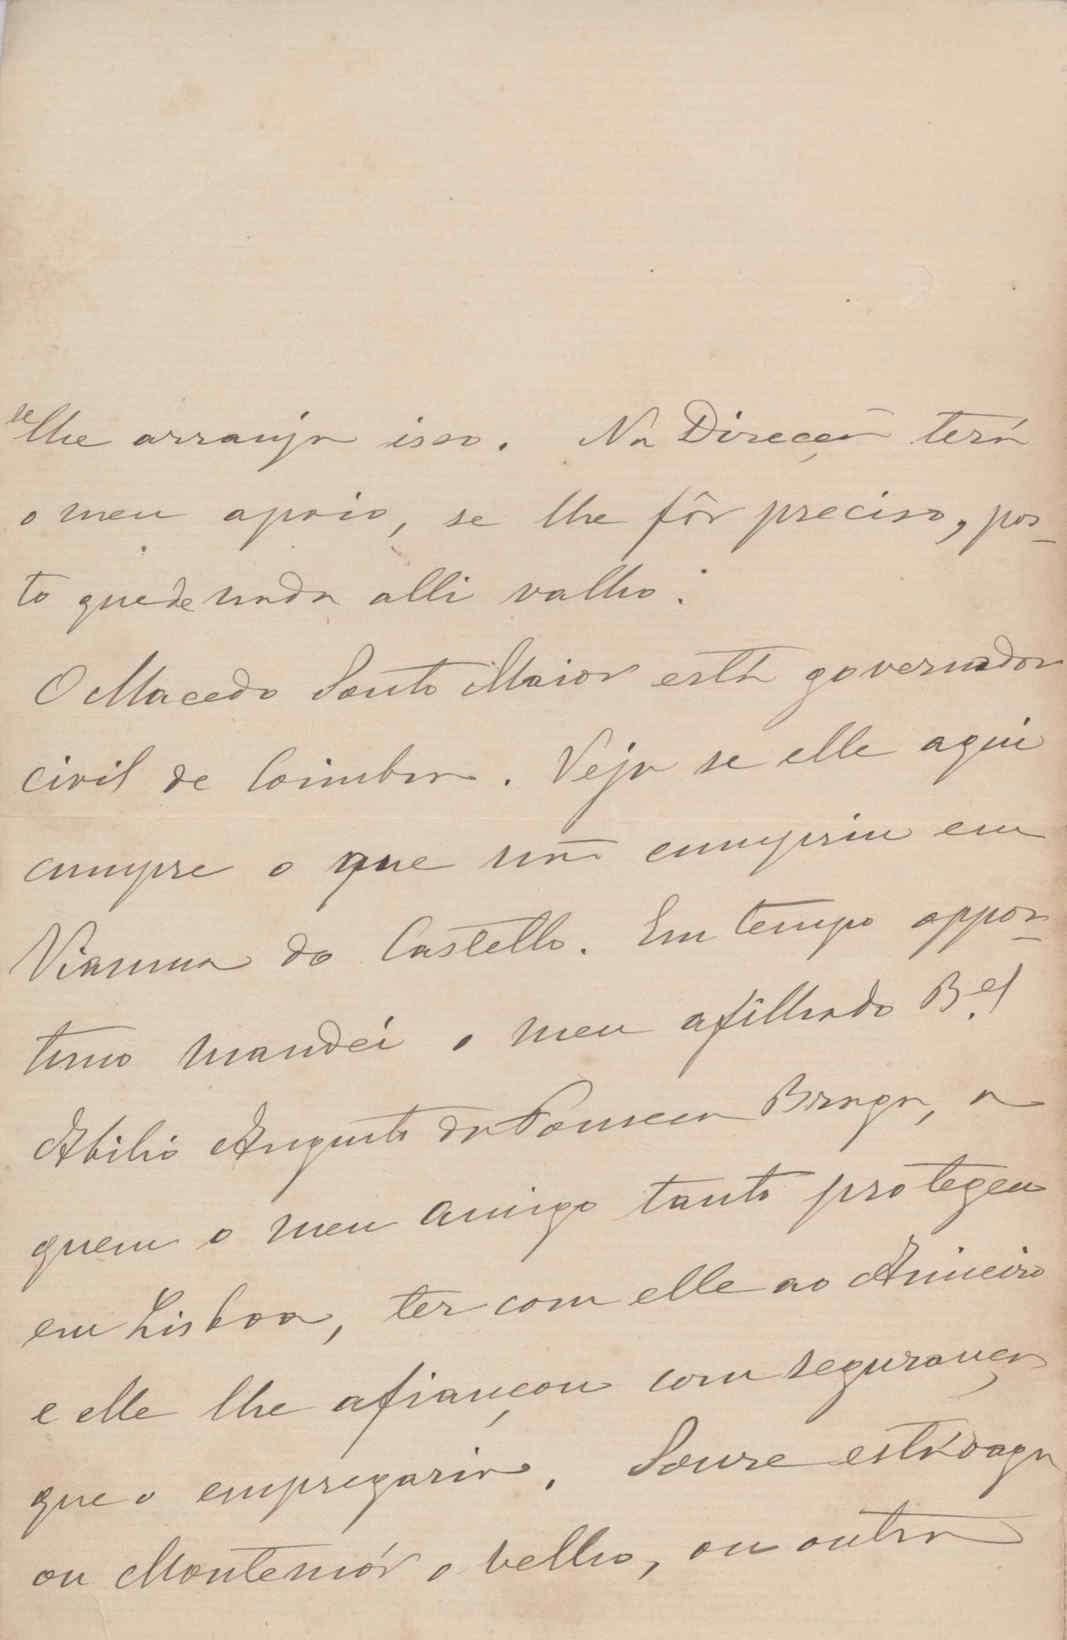 se lhe arranja isso. Na Direcção terá
o meu apoio, se lhe fôr preciso, pos-
to que de nada alli valho.
O Macedo Souto Maior está governador
civil de Coimbra. Veja se elle aqui
cumpre o que não cumpriu em
Vianna do Castello. Em tempo oppor-
tuno mandei o meu afilhado B.el
Abilio Augusto da Fonseca Braga, a
quem o meu amigo tanto protegeu
em Lisboa, ter com elle ao Armeiro
e elle lhe afiançou com segurança
que o empregaria. Soure está vaga
ou Montemór o velho, ou outra